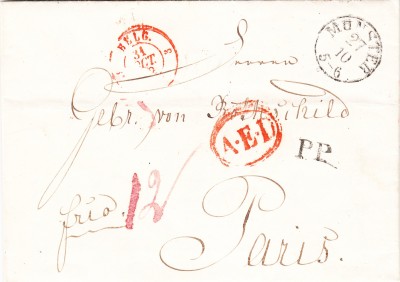 BELG.
31
OCT.
MÜNSTER
27
10
5-6
Herren
Gebr. von Rothschild
A.E.D.
P.P.
frco.
12
Paris.